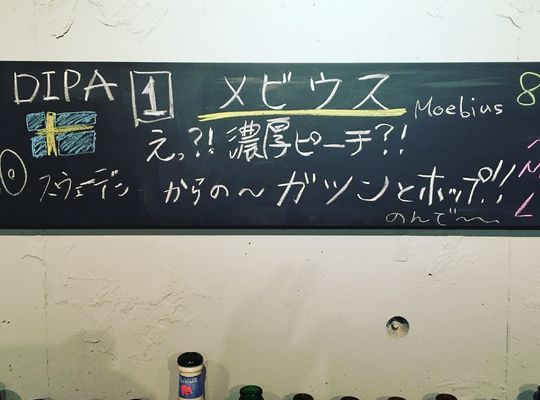 DIPA 1 メビウス Moebius 8
えっ?! 濃厚ピーチ?!
スウェーデン からの〜 ガツンとホップ!!
のんで〜〜
M
L